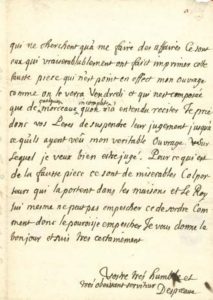 qui ne cherchent qu'à me faire des affaires Ce sont
eux qui vraisemblablement ont fait imprimer cette
fausse piece qui n'est point en effect mon Ouvrage
comme on le verra Vendredi et qui n'est composée
que de quelques morceaux incomplets qu'on m'a entendu reciter Je prie
donc vos Peres de suspendre leur jugement jusqu'à
ce qu'ils ayent veû mon veritable Ouvrage sur
lequel je veux bien estre jugé. Pour ce qui est
de la fausse piece ce sont de miserables Colpor
teurs qui la portent dans les maisons et Le Roy
lui mesme ne peut pas empescher ce desordre Com
ment donc le pourois-je empescher Je vous donne le
bonjour et suis tres certainement
Vostre tres humble et
tres obeissant serviteur
Despreaux